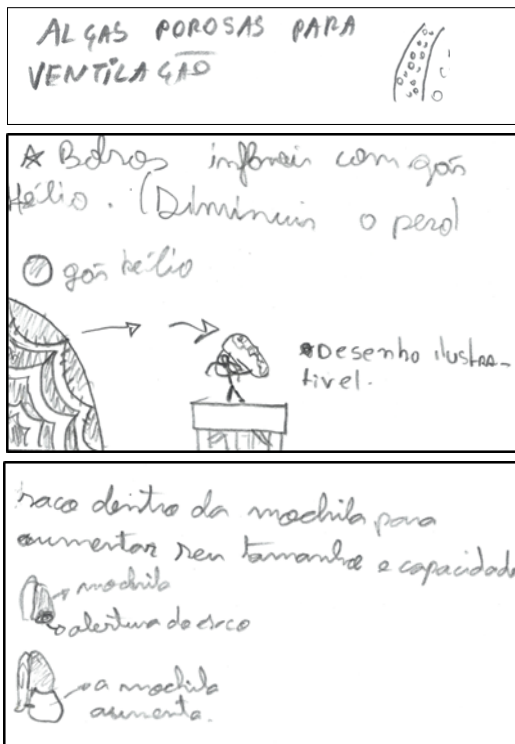 ALÇAS POROSAS PARA
VENTILAÇÃO
Bolsos infláveis com gás
Hélio. (Diminuir o peso)
gás hélio
Desenho ilustra-
tivel.
saco dentro da mochila para
aumentar seu tamanho e capacidade
mochila
abertura do saco
a mochila
aumenta.